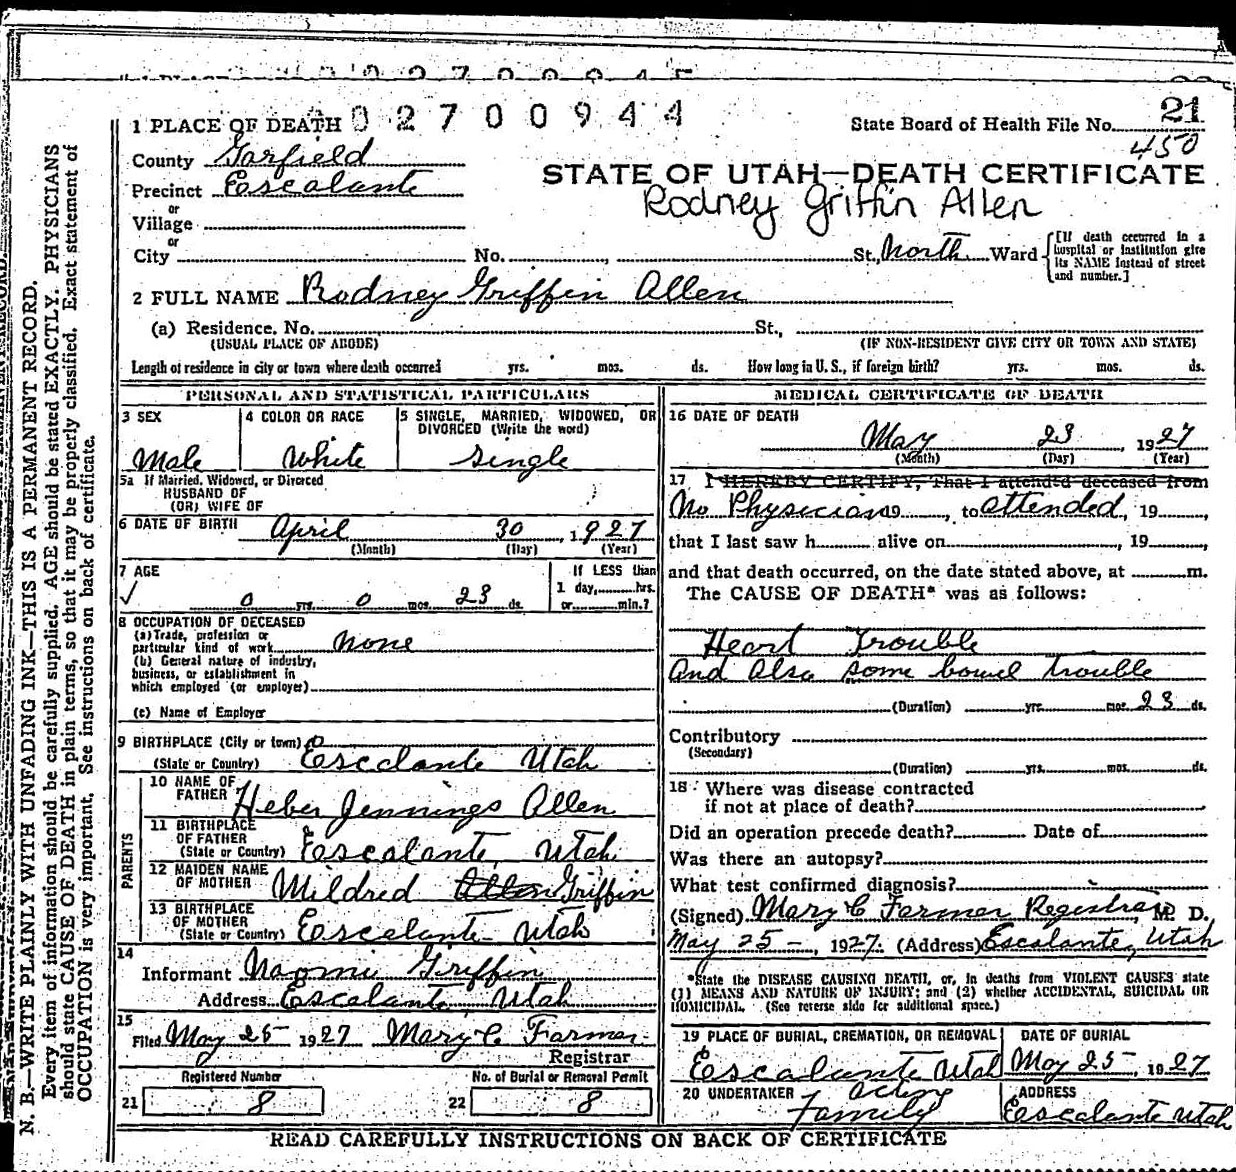 02700944
1 PLACE OF DEATH
State Board of Health File No. 21
450
County Garfield
STATE OF UTAH—DEATH CERTIFICATE
Precinct Escalante
Rodney Griffin Allen
or
Village
or
City No. , St., North Ward
[If death occurred in a hospital or institution give its NAME instead of street and number.]
2 FULL NAME Rodney Griffin Allen
(a) Residence. No. St.,
(USUAL PLACE OF ABODE) (IF NON-RESIDENT GIVE CITY OR TOWN AND STATE)
Length of residence in city or town where death occurred yrs. mos. ds. How long in U. S., if foreign birth? yrs. mos. ds.
PERSONAL AND STATISTICAL PARTICULARS
3 SEX
Male
4 COLOR OR RACE
White
5 SINGLE, MARRIED, WIDOWED, OR DIVORCED (Write the word)
Single
5a If Married, Widowed, or Divorced
HUSBAND OF
(OR) WIFE OF
6 DATE OF BIRTH April 30, 1927
(Month) (Day) (Year)
7 AGE
✓ 0 yrs. 0 mos. 23 ds.
If LESS than
1 day, hrs.
or min.?
8 OCCUPATION OF DECEASED
(a) Trade, profession or
particular kind of work none
(b) General nature of industry,
business, or establishment in
which employed (or employer)
(c) Name of Employer
9 BIRTHPLACE (City or town)
(State or Country) Escalante Utah
PARENTS
10 NAME OF
FATHER Heber Jennings Allen
11 BIRTHPLACE
OF FATHER
(State or Country) Escalante, Utah.
12 MAIDEN NAME
OF MOTHER Mildred Allen Griffin
13 BIRTHPLACE
OF MOTHER
(State or Country) Escalante - Utah
14
Informant Naomi Griffin
Address Escalante, Utah
15
Filed May 25 - 1927 Mary C Farmer
Registrar
Registered Number No. of Burial or Removal Permit
21 8 22 8
MEDICAL CERTIFICATE OF DEATH
16 DATE OF DEATH
May 23, 1927
(Month) (Day) (Year)
17 I HEREBY CERTIFY, That I attended deceased from
No Physician 19 , to attended, 19 ,
that I last saw h alive on , 19 ,
and that death occurred, on the date stated above, at m.
The CAUSE OF DEATH* was as follows:
Heart Trouble
and also some bowel trouble
(Duration) yrs. mos. 23 ds.
Contributory
(Secondary)
(Duration) yrs. mos. ds.
18 Where was disease contracted
if not at place of death?
Did an operation precede death? Date of
Was there an autopsy?
What test confirmed diagnosis?
(Signed) Mary C Farmer Registrar, M. D.
May 25 -, 1927. (Address) Escalante, Utah
*State the DISEASE CAUSING DEATH, or, in deaths from VIOLENT CAUSES state
(1) MEANS AND NATURE OF INJURY; and (2) whether ACCIDENTAL, SUICIDAL OR
HOMICIDAL. (See reverse side for additional space.)
19 PLACE OF BURIAL, CREMATION, OR REMOVAL
Escalante Utah
DATE OF BURIAL
May 25, 1927
20 UNDERTAKER acting
family
ADDRESS
Escalante Utah
READ CAREFULLY INSTRUCTIONS ON BACK OF CERTIFICATE
N. B.—WRITE PLAINLY WITH UNFADING INK—THIS IS A PERMANENT RECORD.
Every item of information should be carefully supplied. AGE should be stated EXACTLY. PHYSICIANS
should state CAUSE OF DEATH in plain terms, so that it may be properly classified. Exact statement of
OCCUPATION is very important. See instructions on back of certificate.